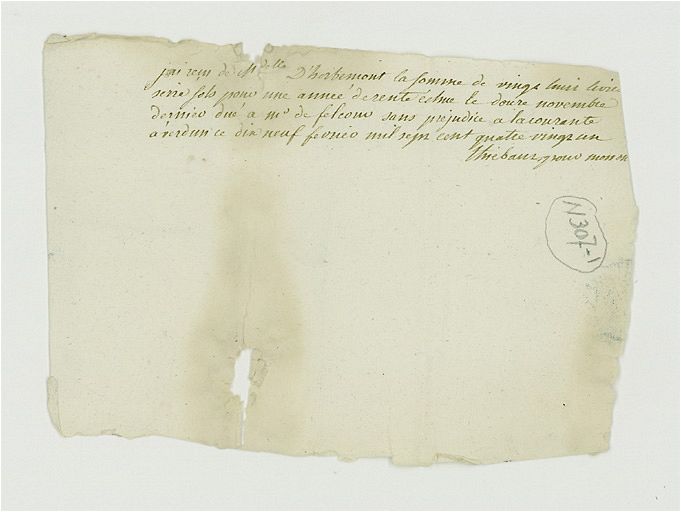 j'ai recu de Mdelle D'herbemont la somme de vingt huit livres
seize sols pour une année de rente échue le douze novembre
dernier due a mr de felcour sans prejudice a la courante
a verdun ce dix neuf fevrier mil sept cent quatre vingt un
thiebaut pour mon
N307-1